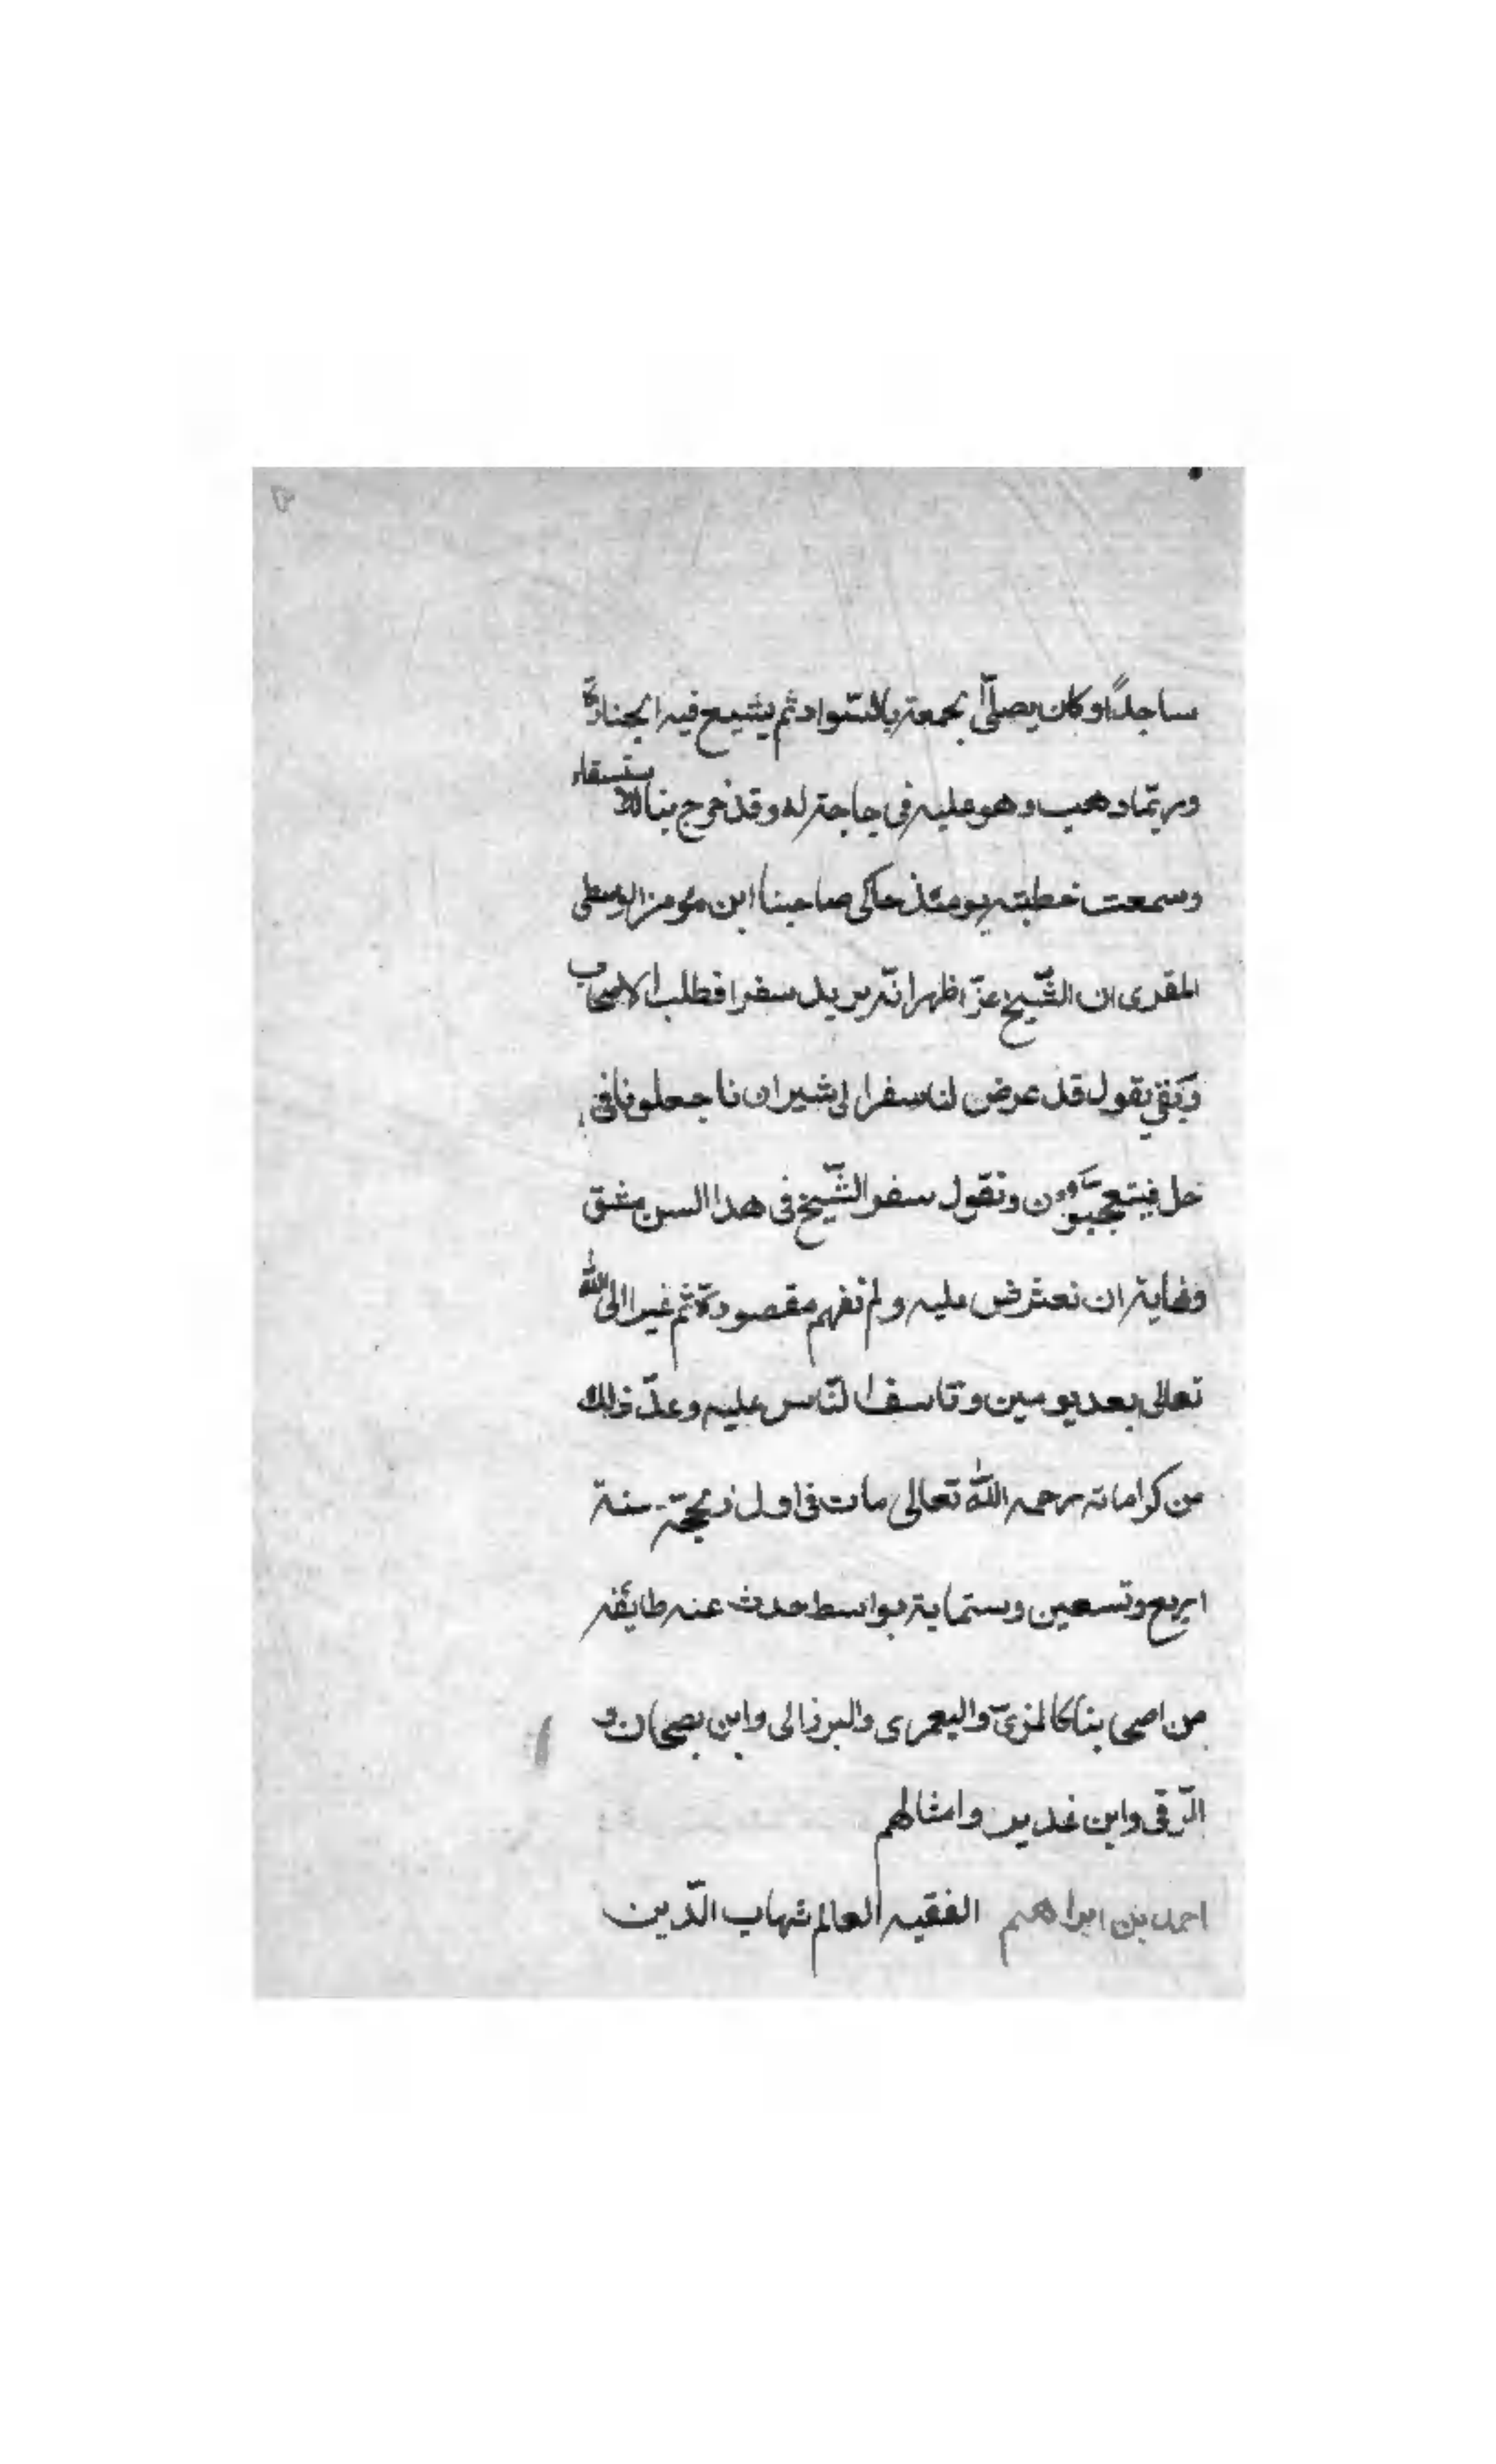 ساجدًا وكان يصلّي الجمعة بالسّواد ثم يشيع فيه الجنازة
وربّما ذهب وهو عليه في حاجة له وقد خرج بنا للاستسقاء
وسمعت خطبته يومئذ حاكى صاحبنا ابن مؤمن الواسطى
المقرى ان الشّيخ عزّ اظهر انّه يريد سفرا فطلب الاصحاب
وبقي يقول قد عرض لنا سفر الى شيران نا جعلونا في
حل فيتعجّبون ونقول سفر الشّيخ في هذا السن مشق
وغاية ان نعترض عليه ولم نفهم مقصودة ثم غبر الى الله
تعالى بعد يومين وتاسف النّاس عليه وعدّ ذلك
من كراماته رحمه الله تعالى مات في اول ذيحجّة سنة
اربع وتسعين وستماية بواسط حدث عنه طايفة
من اصحابنا كالمزيّ واليعمرى والبرزالى وابن بصحان و
الرّقى وابن غدير وامثالهم
احمد بن ابراهيم الفقيه العالم شهاب الدّين